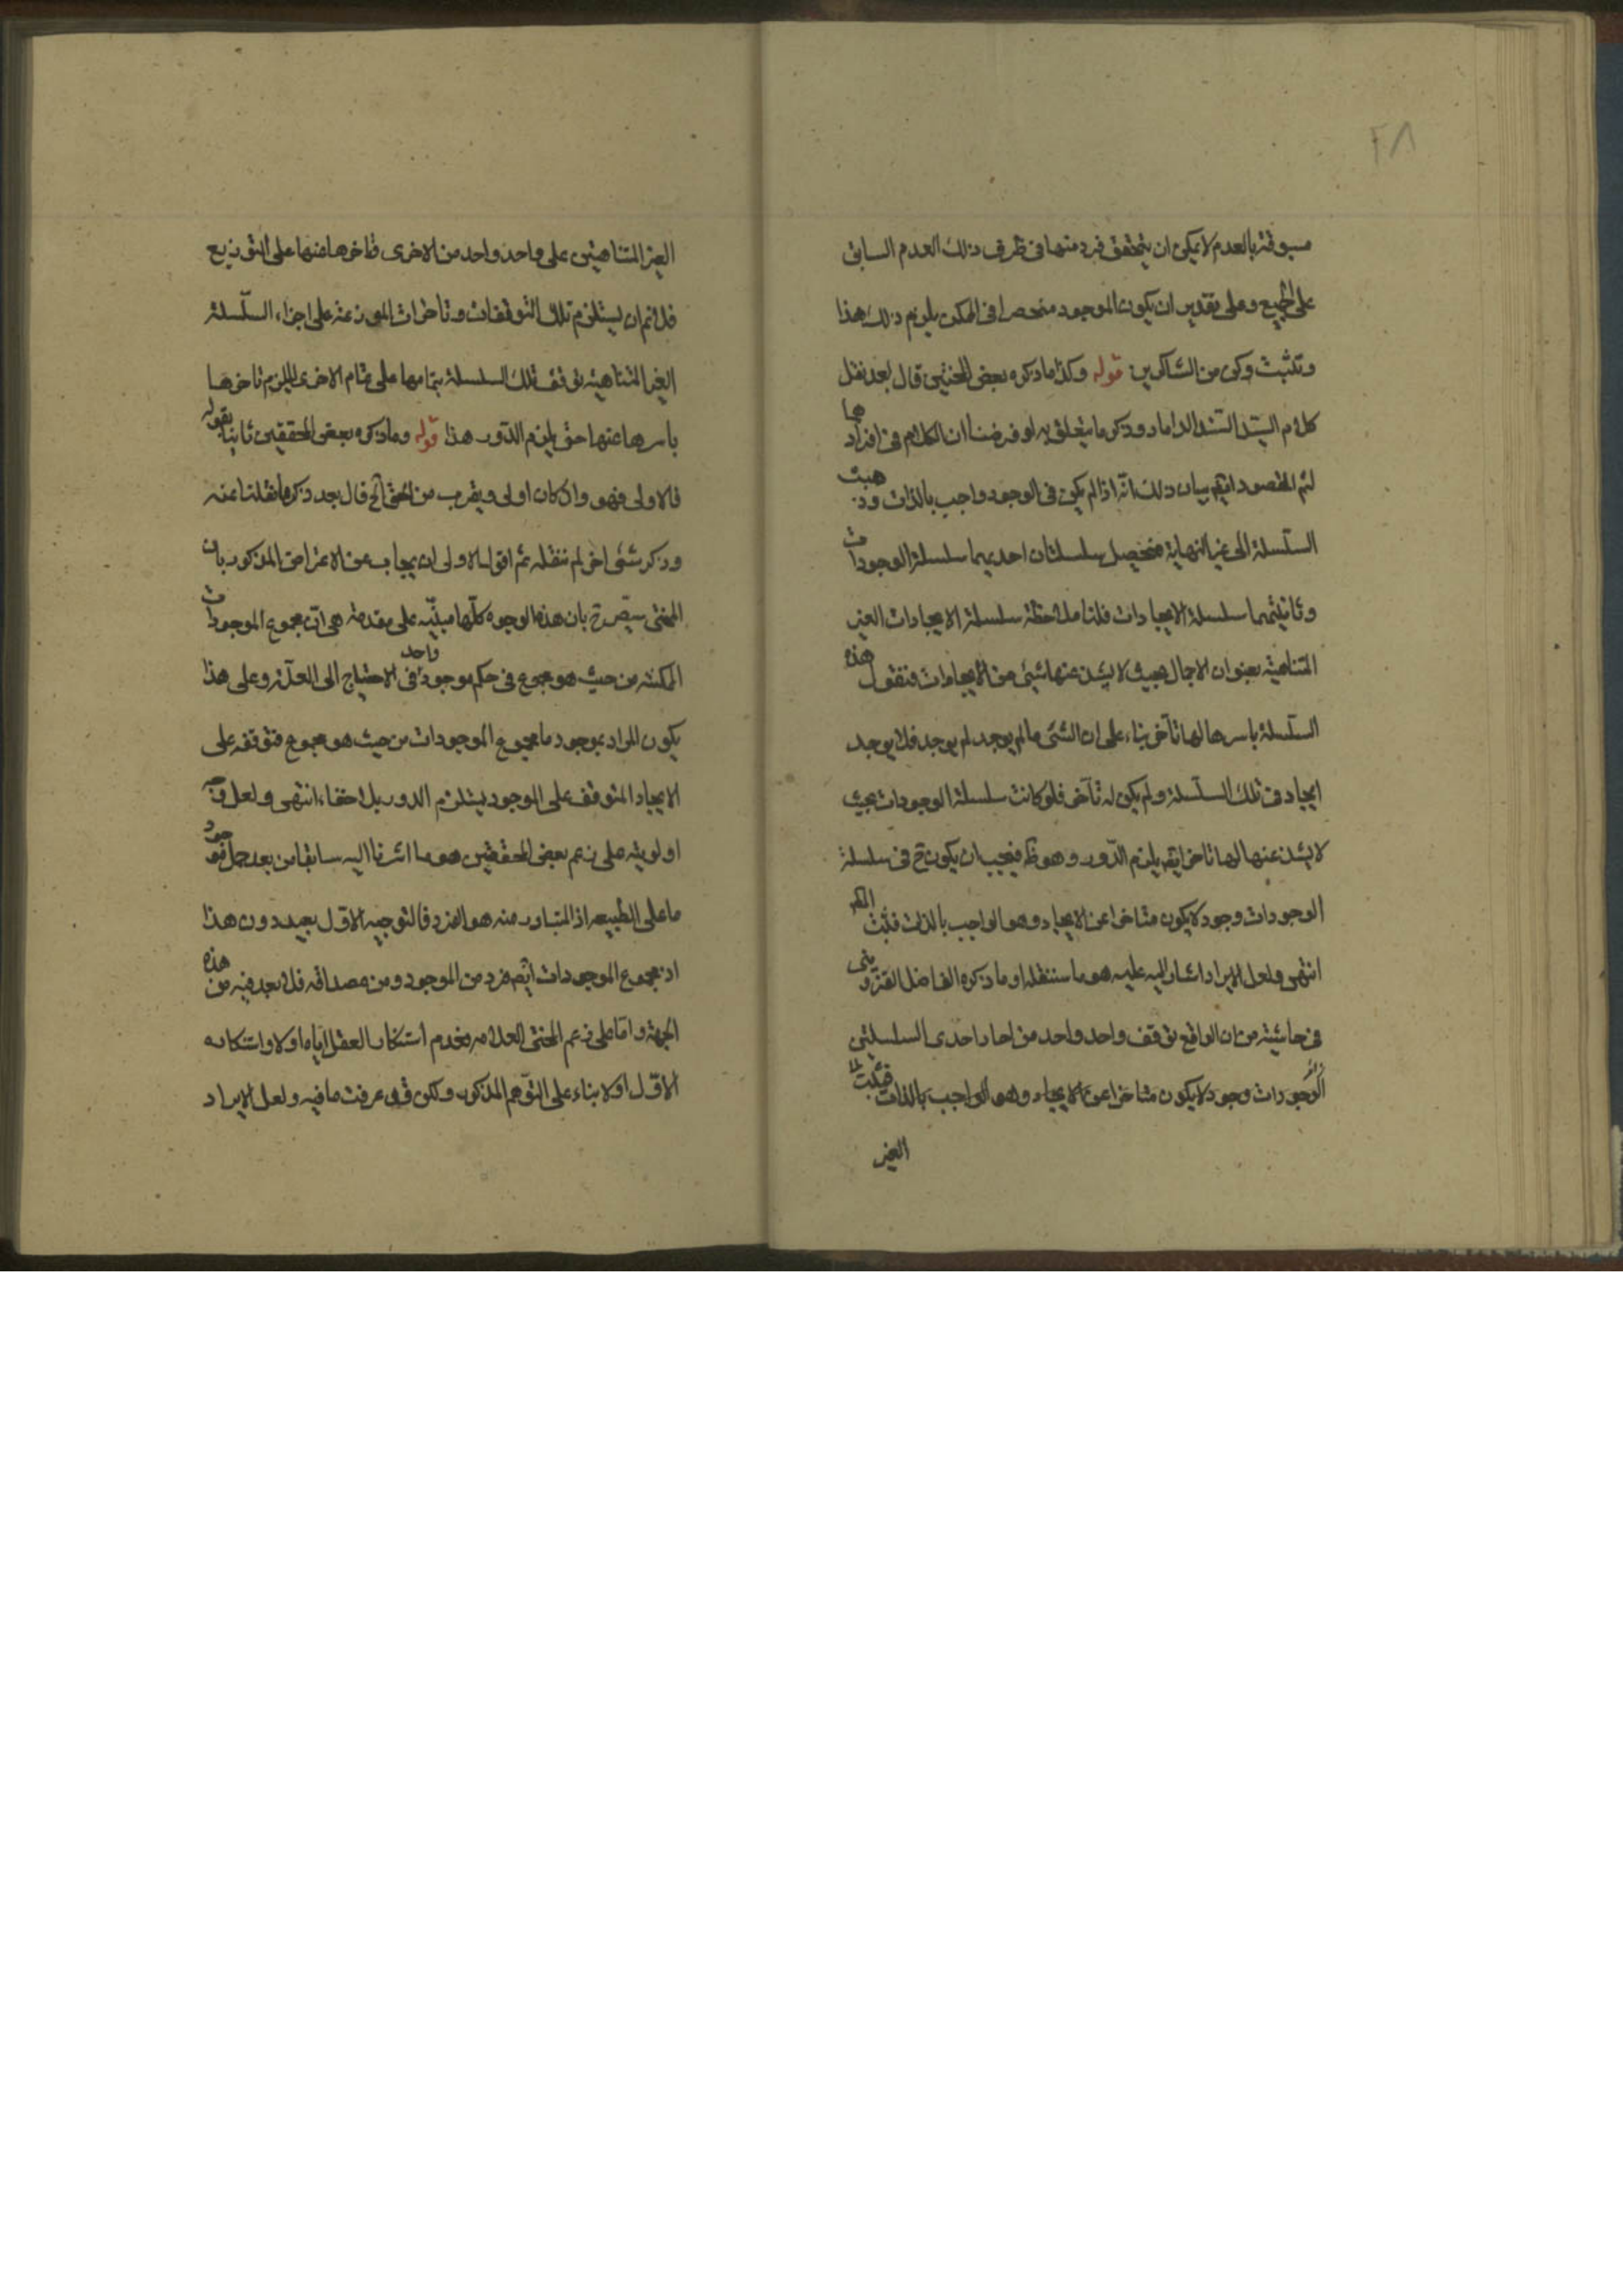 ٢٨
مسبوقة بالعدم لا يمكن ان يتحقق فرد منها فى ظرف ذلك العدم السابق
على الجميع وعلى تقدير ان يكون الموجود منحصرا فى الممكن يلزم ذلك هذا
وتثبت وكن من الشاكرين قوله وكذا ما ذكره بعض المحشين قال بعد نقل
كلام السيد السند الداماد وذكر ما يتعلق به لو فرضنا ان الكلام فى افرادها
لتم المقصود ايضا بيان ذلك انه اذا لم يكن فى الوجود واجب بالذات وذهبت
السلسلة الى غير النهاية فتحصيل سلسلتان احديهما سلسلة الوجودات
وثانيتهما سلسلة الايجادات فلنا ملاحظة سلسلة الايجادات الغير
المتناهية بعنوان الاجمال بحيث لا يشذ عنها شئ من الايجادات فنقول هذه
السلسلة باسرها لها تأخر بناء على ان الشئ ما لم يوجد لم يوجد فلا يوجد
ايجاد فى تلك السلسلة ولم يكن له تأخر فلو كانت سلسلة الوجودات بحيث
لا يشذ عنها لها تاخر ايضا يلزم الدور وهو ظ فيجب ان يكون ح فى سلسلة
الوجودات وجود لا يكون متاخرا عن الايجاد وهو الواجب بالذات فثبت المط
انتهى ولعل الايراد المشار اليه عليه هو ما سننقله او ما ذكره الفاضل القزوينى
فى حاشيته من ان الواقع توقف واحد واحد من احاد احدى السلسلتين
الوجودات وجود لا يكون متاخرا عن الايجاد وهو الواجب بالذات فثبت
الغير
الغير المتناهيتين على واحد واحد من الاخرى فتاخرها عنها على التوزيع
فلا نم ان يستلزم تلك التوقفات وتاخرات الموزعة على اجزاء السلسلة
الغير المتناهية توقف تلك السلسلة بتمامها على تمام الاخرى ليلزم تاخرها
باسرها عنها حتى يلزم الدور هذا قوله وما ذكره بعض المحققين ثانيا بقوله
فالاولى فهو وان كان اولى ويقرب من الحق الخ قال بعد ذكر ما نقلنا عنه
وذكر شئ اخر لم ننقله ثم اقول الاولى ان يجاب عن الاعتراض المذكور بان
المحشى سيصرح بان هذه الوجوه كلها مبنية على مقدمة هى ان مجموع الموجودات
الممكنة من حيث هو مجموع فى حكم موجود واحد فى الاحتياج الى العلة وعلى هذا
يكون المراد بموجود ما مجموع الموجودات من حيث هو مجموع فتوقفه على
الايجاد المتوقف على الموجود يستلزم الدور بلا خفاء انتهى ولعل
اولويته على زعم بعض المحققين هو ما اشرنا اليه سابقا من بعد حمل موجود
ما على الطبيعه اذ المتبادر منه هو الفرد فالتوجيه الاول بعيد دون هذا
اذ مجموع الموجودات ايضا فرد من الموجود ومن مصداقه فلا بعد فيه من هذه
الجهة واما على زعم المحشى العلامه فعدم استنكار العقل اياه اولا واستنكاره
الاول اولا بناء على التوهم المذكور ولكن قد عرفت ما فيه ولعل الايراد